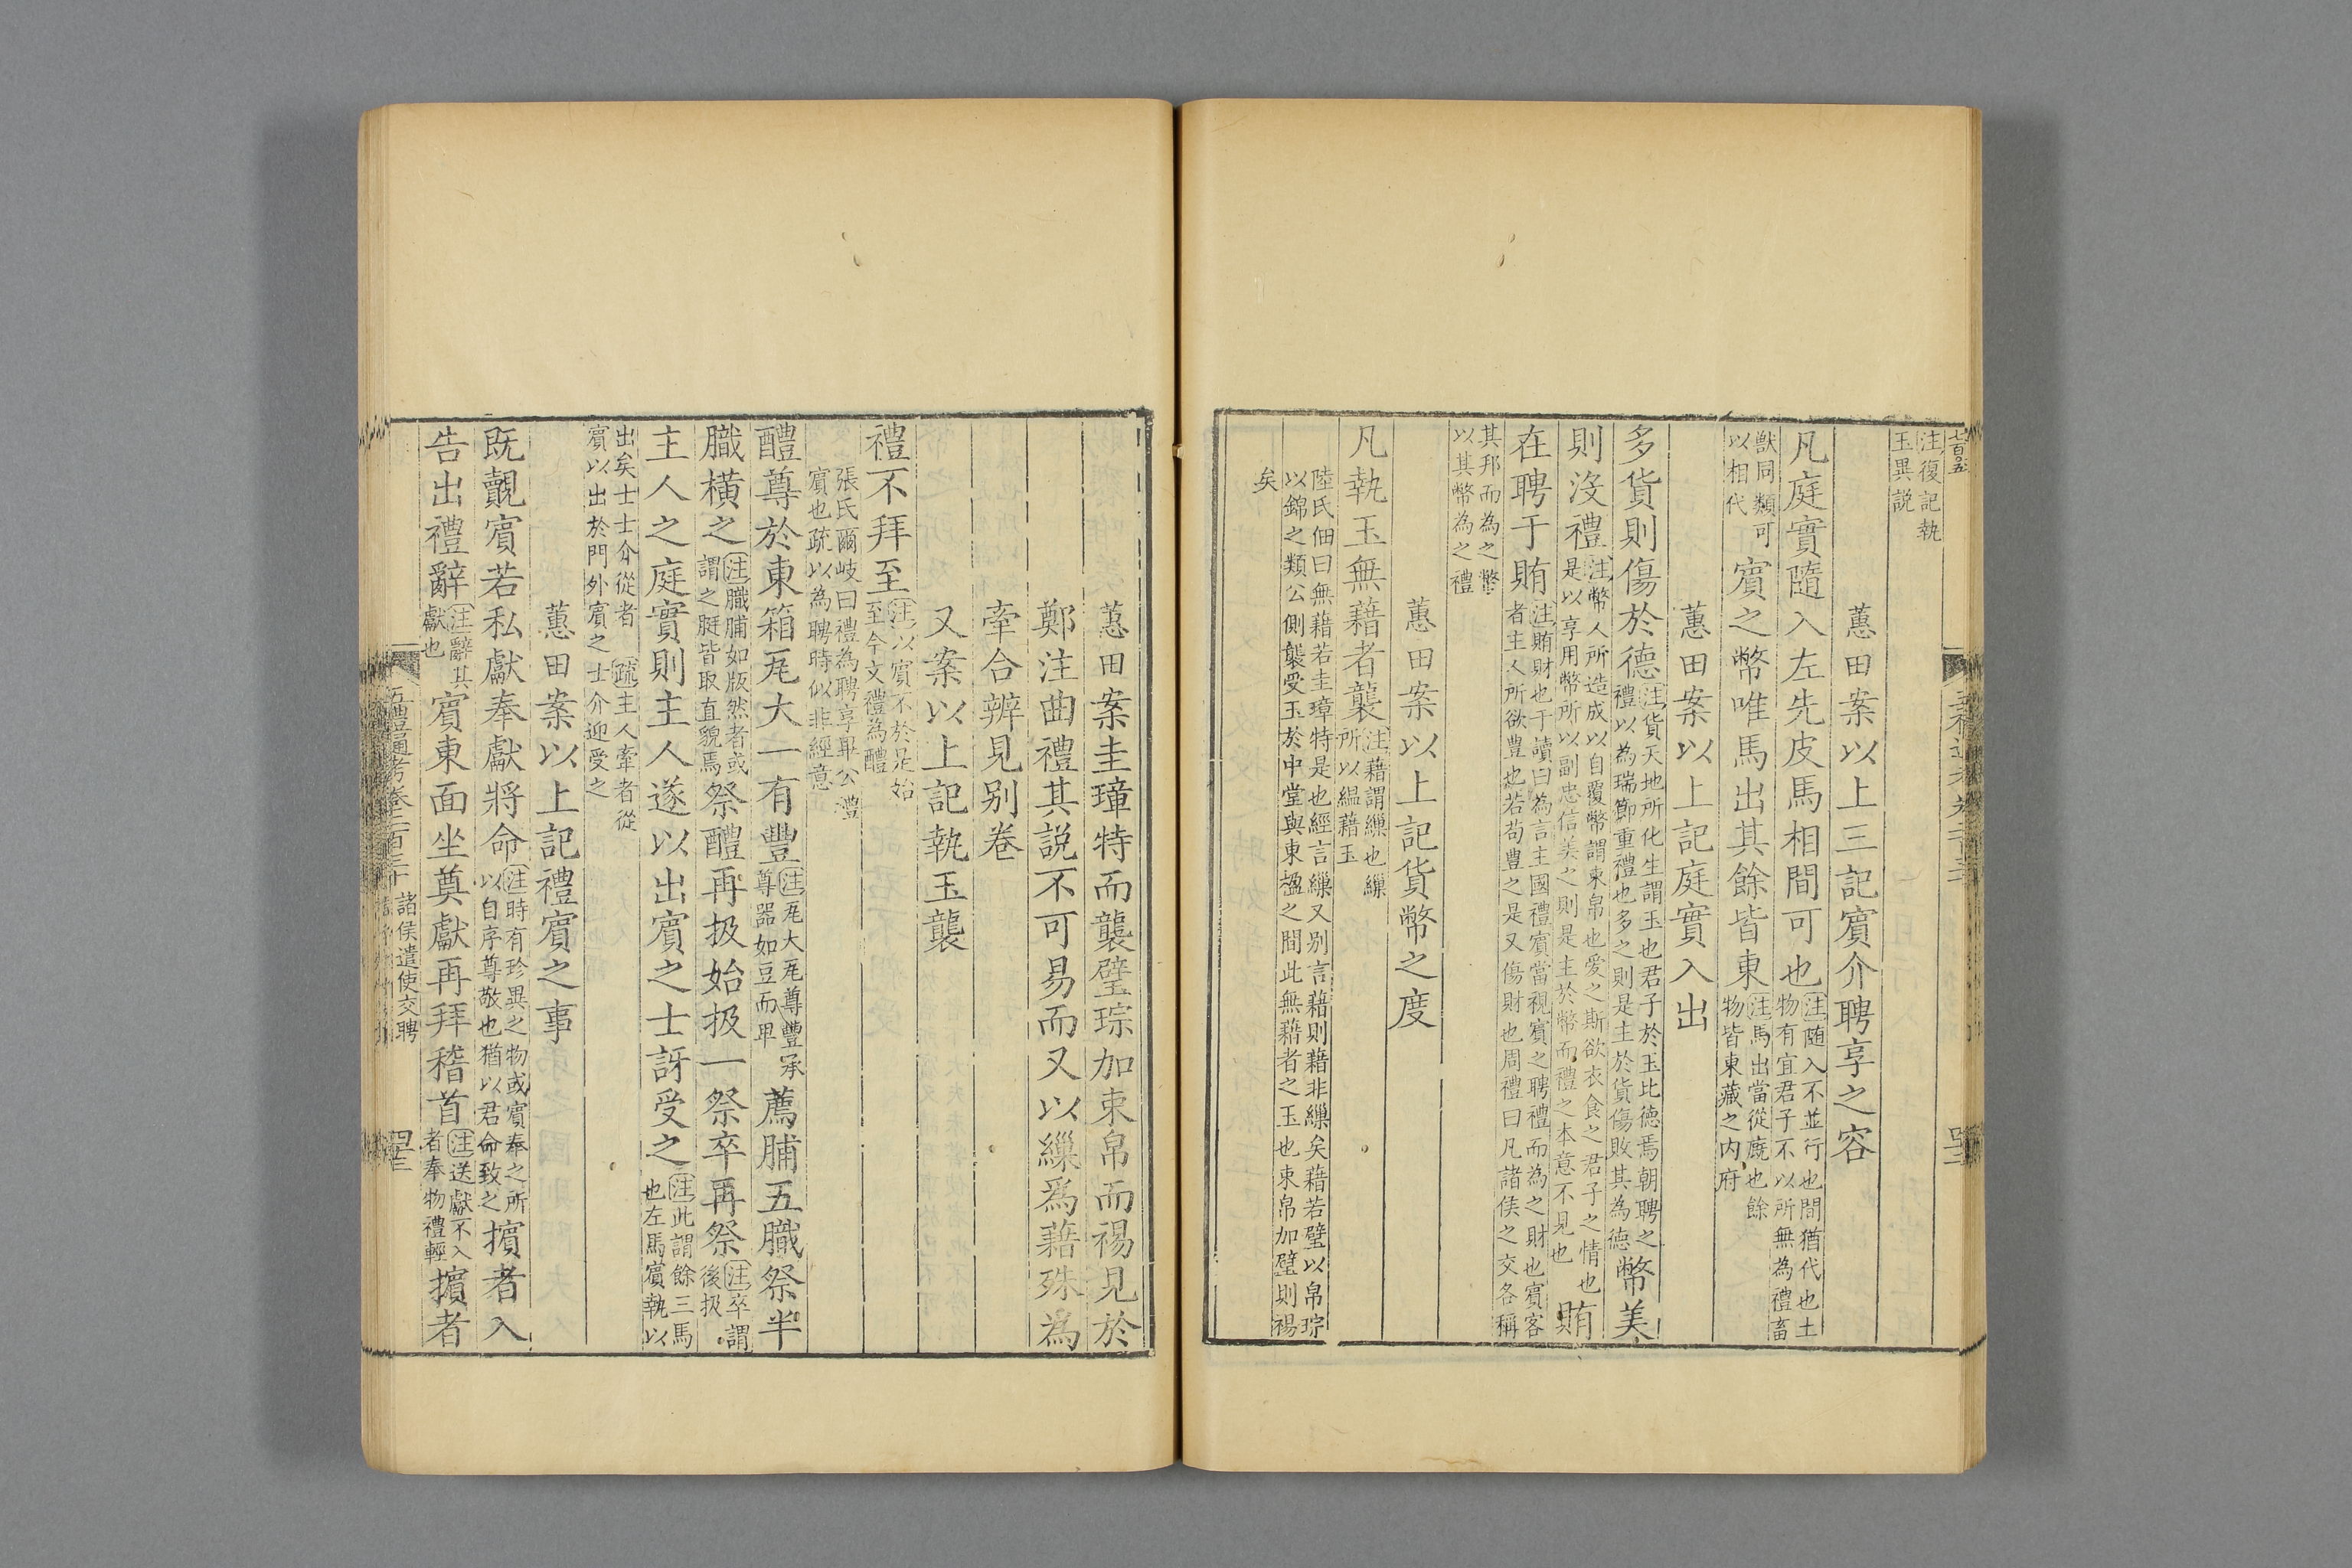 注復記執
玉異説
蕙田案以上三記賓介聘享之容
凡庭實隨入左先皮馬相間可也注隨入不並行也間猶代也土
物有宜君子不以所無為禮畜
獸同類可
以相代
賓之幣唯馬出其餘皆東注馬出當從廐也餘
物皆東藏之内府
蕙田案以上記庭實入出
多貨則傷於德注貨天地所化生謂玉也君子於玉比德焉朝聘之
禮以為瑞節重禮也多之則是主於貨傷敗其為德
幣美
則沒禮注幣人所造成以自覆幣謂束帛也愛之斯欲衣食之君子之情也
是以享用幣所以副忠信美之則是主於幣而禮之本意不見也
賄
在聘于賄注賄財也于讀曰為言主國禮賓當視賓之聘禮而為之財也賓客
者主人所欲豐也若苟豊之是又傷財也周禮曰凡諸侯之交各稱
其邦而為之幣
以其幣為之禮
蕙田案以上記貨幣之度
凡執玉無藉者襲注藉謂繅也繅
所以緼藉玉
陸氏佃曰無藉若圭璋特是也經言繅又别言藉則藉非繅矣藉若璧以帛琮
以錦之類公側襲受玉於中堂與東楹之間此無藉者之玉也束帛加璧則裼
矣
蕙田案圭璋特而襲璧琮加束帛而裼見於
鄭注曲禮其説不可易而又以繅爲藉殊為
牽合辨見别卷
又案以上記執玉襲
禮不拜至注以賓不於是始
至今文禮為醴
張氏爾岐曰禮為聘享畢公禮
賓也疏以為聘時似非經意
醴尊於東箱瓦大一有豐注瓦大瓦尊豐承
尊器如豆而卑
薦脯五膱祭半
膱橫之注膱脯如版然者或
謂之脡皆取直貌焉
祭醴再扱始扱一祭卒再祭注卒謂
後扱
主人之庭實則主人遂以出賓之士訝受之注此謂餘三馬
也左馬賓執以
出矣士士介從者　疏主人牽者從
賓以出於門外賓之士介迎受之
蕙田案以上記禮賓之事
既覿賓若私獻奉獻將命注時有珍異之物或賓奉之所
以自序尊敬也猶以君命致之
擯者入
告出禮辭注辭其
獻也
賓東面坐奠獻再拜稽首注送獻不入
者奉物禮輕
擯者
五禮通考卷二百三十　諸侯遣使交聘